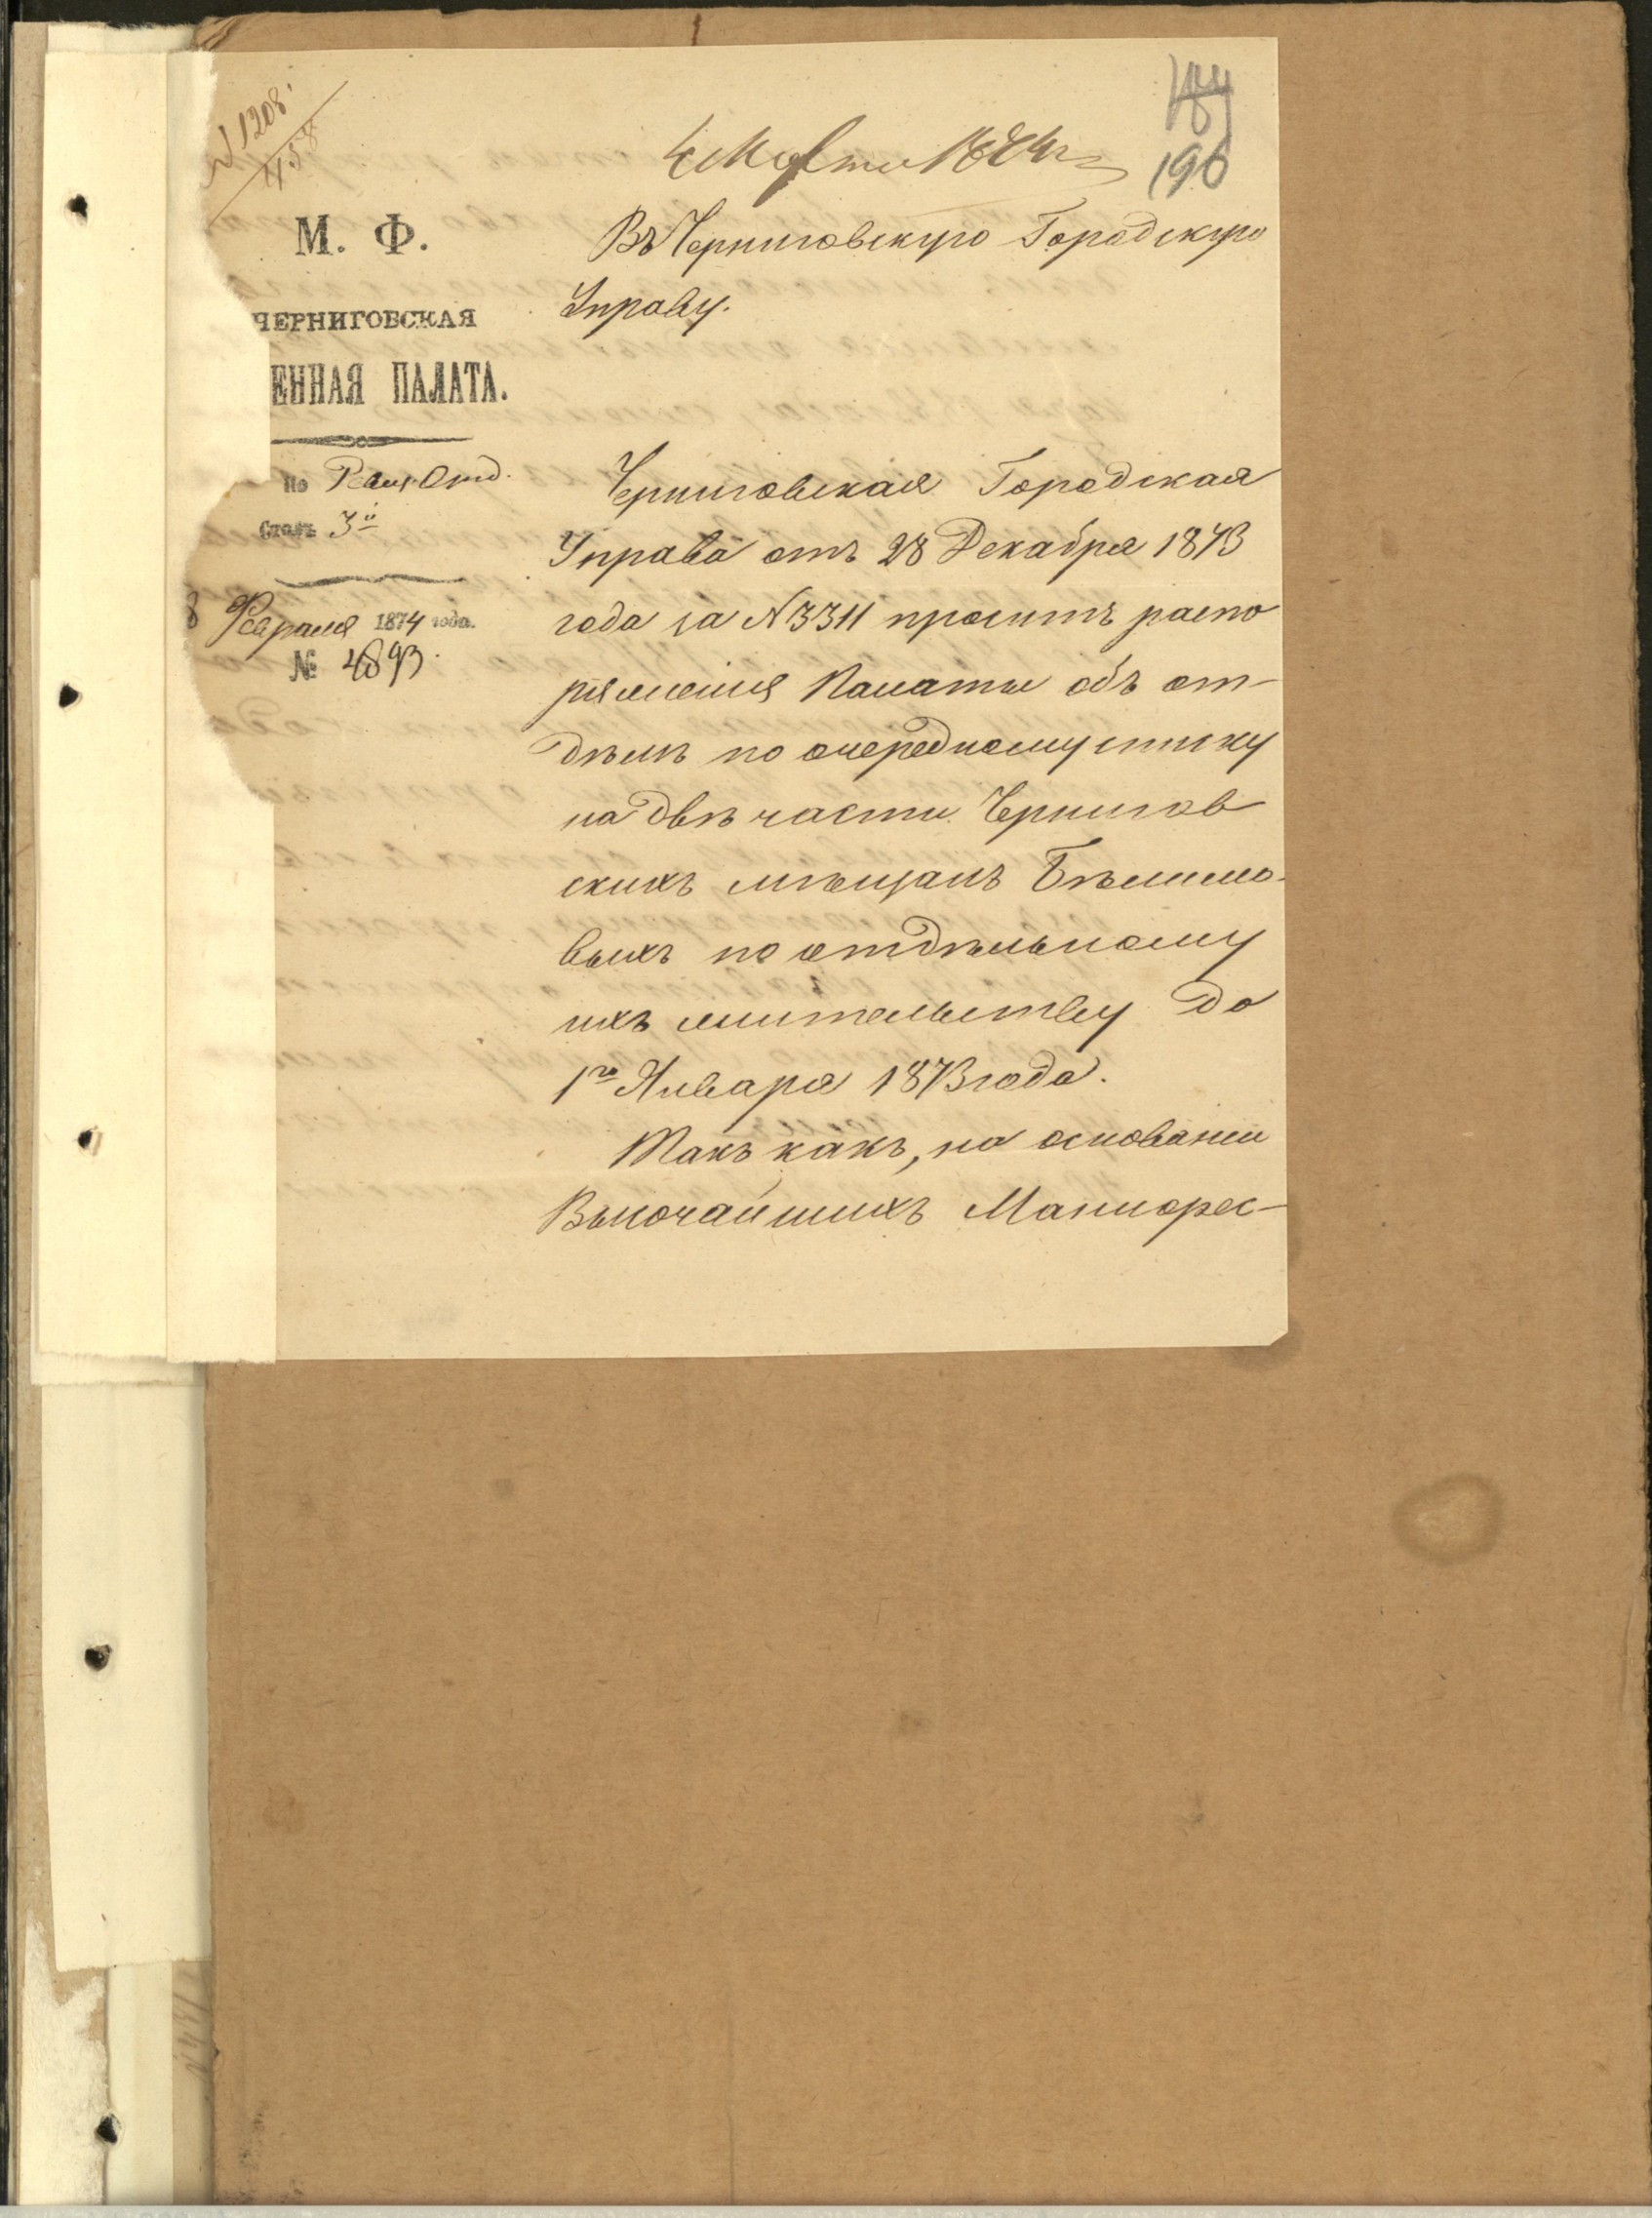 N 1208
458
184
190
4 Марта 1874 г
М. Ф.
ЧЕРНИГОВСКАЯ
ЕННАЯ ПАЛАТА.
По Рев. Отд.
Столъ 3й
8 Февраля 1874 года.
№ 4893.
Въ Черниговскую Городскую
Управу.
Черниговская Городская
Управа отъ 28 Декабря 1873
года за N 3311 проситъ распо
ряженія Палаты объ от-
дѣлѣ по очередному списку
на двѣ части Чернигов
скихъ мѣщанъ
выхъ по отдѣльному
ихъ жительству до
1го Января 1873 года.
Такъ какъ, на основаніи
Высочайшихъ Манифес-